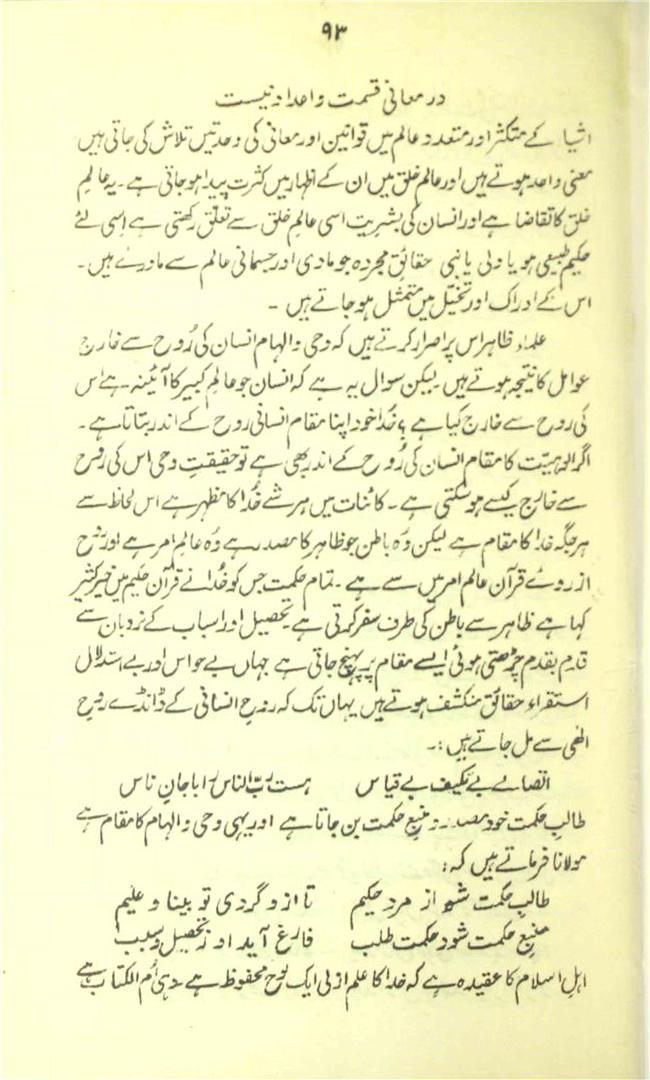 ۹۳
در معانی قسمت و اعداد نیست
اشیا کے متکثر اور متعدد عالم میں قوانین اور معانی کی وحدتیں تلاش کی جاتی ہیں
معنی واحد ہوتے ہیں اور عالم خلق میں ان کے اظہار میں کثرت پیدا ہو جاتی ہے۔ یہ عالمِ
خلق کا تقاضا ہے اور انسان کی بشریت اسی عالمِ خلق سے تعلق رکھتی ہے اسی لئے
حکیم طبیعی ہو یا ولی یا نبی حقائقِ مجردہ جو مادی اور جسمانی عالم سے ماورے ہیں۔
اس کے ادراک اور تخیّل میں متمثل ہو جاتے ہیں ۔
علماء ظاہر اس پر اصرار کرتے ہیں کہ وحی و الہام انسان کی رُوح سے خارج
عوامل کا نتیجہ ہوتے ہیں لیکن سوال یہ ہے کہ انسان جو عالمِ کبیر کا آئینہ ۔ ہے اس
کی روح سے خارج کیا ہے ؟ خُدا خود اپنا مقام انسانی روح کے اندر بتاتا ہے۔
اگر الوہیّت کا مقام انسان کی رُوح کے اندر بھی ہے تو حقیقتِ وحی اس کی روح
سے خارج کیسے ہو سکتی ہے ۔ کائنات میں ہر شے خُدا کا مظہر ہے اس لحاظ سے
ہر جگہ خدا کا مقام ہے لیکن وہ باطن جو ظاہر کا مصدر ہے وُہ عالمِ امر ہے اور روح
از روئے قرآن عالم امر میں سے ہے ۔ تمام حکمت جس کو خُدا نے قرآن حکیم میں خیر کثیر
کہا ہے ظاہر سے باطن کی طرف سفر کرتی ہے۔ تحصیل اور اسباب کے نردبان سے
قدم بقدم چڑھتی ہوئی ایسے مقام پر پہنچ جاتی ہے جہاں بے حواس اور بے استدلال
استقراء حقائق منکشف ہوتے ہیں یہاں تک کہ روحِ انسانی کے ڈانڈے روحِ
الٰہی سے مل جاتے ہیں :۔
اتصالے بے تکیف بے قیاس ہست ربّ الناس را با جانِ ناس
طالبِ حکمت خود مصدر و منبعِ حکمت بن جاتا ہے اور یہی وحی و الہام کا مقام ہے
مولانا فرماتے ہیں کہ :
طالبِ حکمت شو از مردِ حکیم تا از و گردی تو بینا و علیم
منبعِ حکمت شود حکمت طلب فارغ آید او ز تحصیل و سبب
اہلِ اسلام کا عقیدہ ہے کہ خدا کا علم ازلی ایک لوح محفوظ ہے ۔ وہی اُم الکتاب ہے